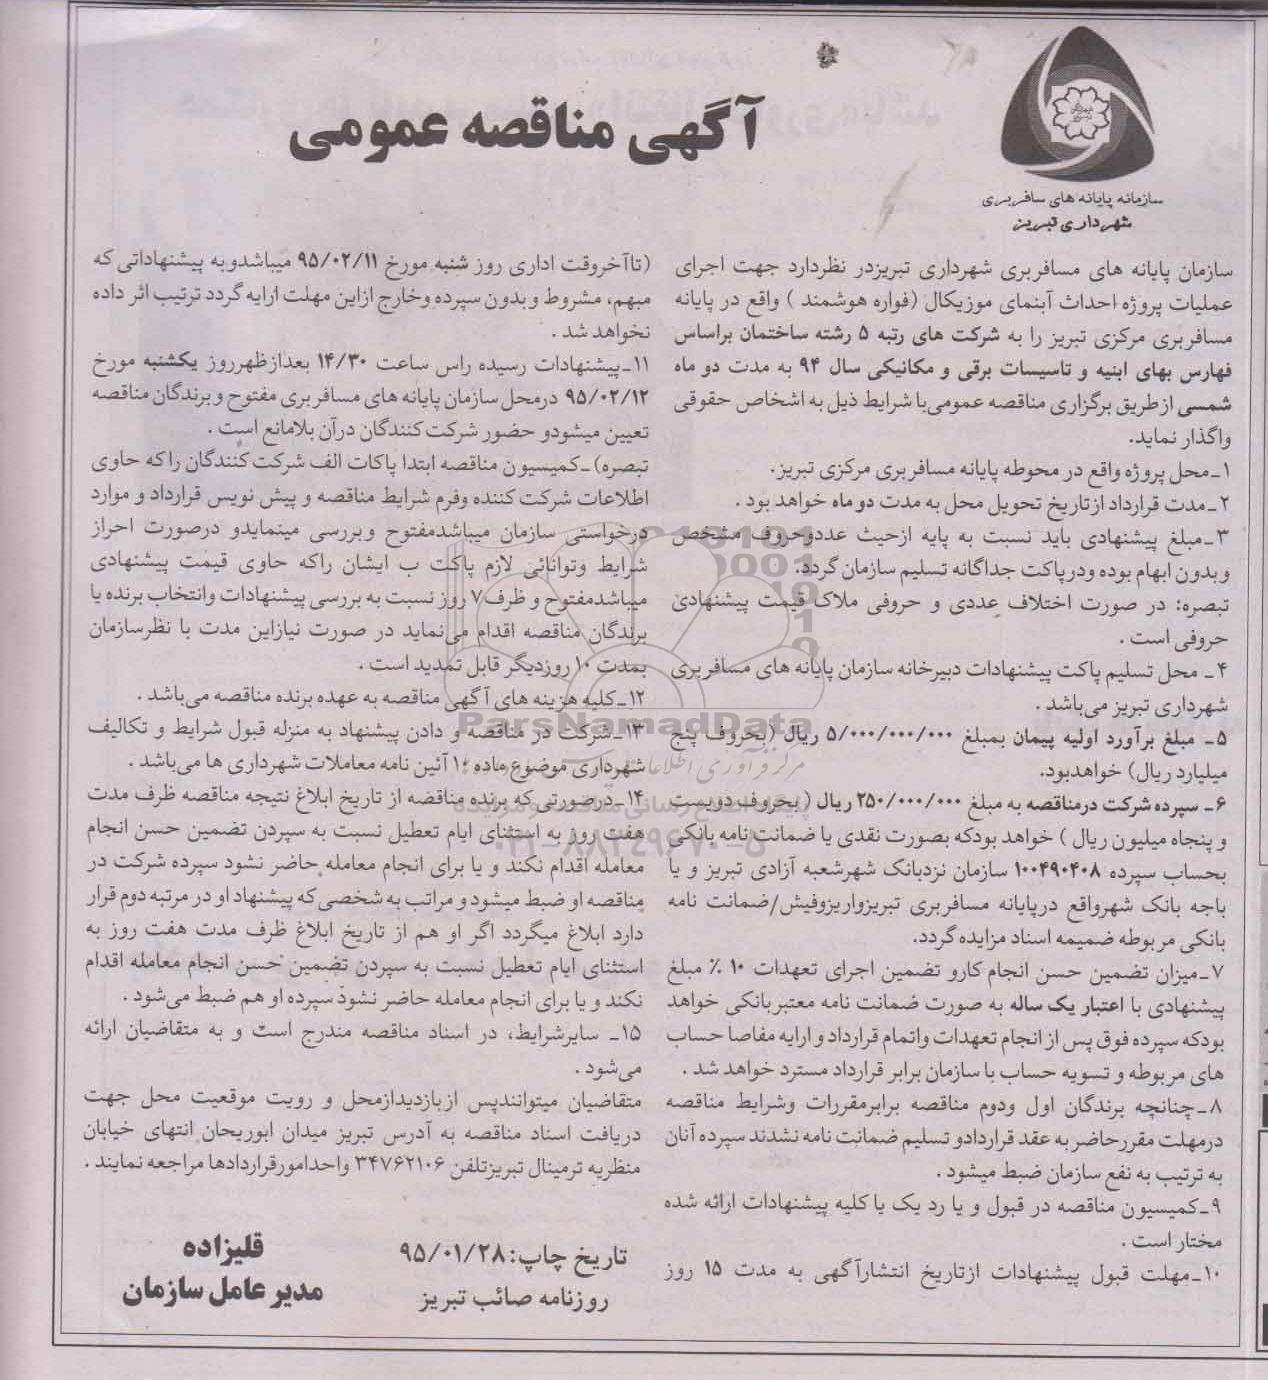 سازمان پایانه های مسافربری
شهرداری تبریز
آگهی مناقصه عمومی
سازمان پایانه های مسافربری شهرداری تبریزدر نظردارد جهت اجرای
عملیات پروژه احداث آبنمای موزیکال (فواره هوشمند ) واقع در پایانه
مسافربری مرکزی تبریز را به شرکت های رتبه ۵ رشته ساختمان براساس
فهارس بهای ابنیه و تاسیسات برقی و مکانیکی سال ۹۴ به مدت دو ماه
شمسی ازطریق برگزاری مناقصه عمومی‌با شرایط ذیل به اشخاص حقوقی
واگذار نماید.
۱ـ‌محل پروژه واقع در محوطه پایانه مسافربری مرکزی تبریز.
۲ـ‌مدت قرارداد ازتاریخ تحویل محل به مدت دو ماه خواهد بود .
۳ـ‌مبلغ پیشنهادی باید نسبت به پایه ازحیث عددوحروف مشخص
وبدون ابهام بوده ودرپاکت جداگانه تسلیم سازمان گردد.
تبصره: در صورت اختلاف عددی و حروفی ملاک قیمت پیشنهادی
حروفی است .
۴ـ محل تسلیم پاکت پیشنهادات دبیرخانه سازمان پایانه های مسافربری
شهرداری تبریز می‌باشد .
۵ـ مبلغ برآورد اولیه پیمان بمبلغ ۵/۰۰۰/۰۰۰/۰۰۰ ریال (بحروف پنج
میلیارد ریال) خواهدبود.
۶ـ سپرده شرکت درمناقصه به مبلغ ۲۵۰/۰۰۰/۰۰۰ ریال ( بحروف دویست
و پنجاه میلیون ریال ) خواهد بودکه بصورت نقدی یا ضمانت نامه بانکی
بحساب سپرده ۱۰۰۴۹۰۴۰۸ سازمان نزدبانک شهرشعبه آزادی تبریز و یا
باجه بانک شهرواقع درپایانه مسافربری تبریزواریزوفیش/ضمانت نامه
بانکی مربوطه ضمیمه اسناد مزایده گردد.
۷ـ‌میزان تضمین حسن انجام کارو تضمین اجرای تعهدات ۱۰ ٪ مبلغ
پیشنهادی با اعتبار یک ساله به صورت ضمانت نامه معتبربانکی خواهد
بودکه سپرده فوق پس از انجام تعهدات واتمام قرارداد و ارایه مفاصا حساب
های مربوطه و تسویه حساب با سازمان برابر قرارداد مسترد خواهد شد .
۸ـ‌چنانچه برندگان اول ودوم مناقصه برابرمقررات وشرایط مناقصه
درمهلت مقررحاضر به عقد قراردادو تسلیم ضمانت نامه نشدند سپرده آنان
به ترتیب به نفع سازمان ضبط میشود .
۹ـ‌کمیسیون مناقصه در قبول و یا رد یک یا کلیه پیشنهادات ارائه شده
مختار است .
۱۰ـ‌مهلت قبول پیشنهادات ازتاریخ انتشارآگهی به مدت ۱۵ روز
(تاآخروقت اداری روز شنبه مورخ ۹۵/۰۲/۱۱ میباشدوبه پیشنهاداتی که
مبهم، مشروط وبدون سپرده وخارج ازاین مهلت ارایه گردد ترتیب اثر داده
نخواهد شد .
۱۱ـ‌پیشنهادات رسیده راس ساعت ۱۴/۳۰ بعدازظهرروز یکشنبه مورخ
۹۵/۰۲/۱۲ درمحل سازمان پایانه های مسافربری مفتوح وبرندگان مناقصه
تعیین میشودو حضور شرکت کنندگان درآن بلامانع است .
تبصره)ـ‌کمیسیون مناقصه ابتدا پاکات الف شرکت کنندگان راکه حاوی
اطلاعات شرکت کننده وفرم شرایط مناقصه و پیش نویس قرارداد و موارد
درخواستی سازمان میباشدمفتوح وبررسی مینمایدو درصورت احراز
شرایط وتوانائی لازم پاکت ب ایشان راکه حاوی قیمت پیشنهادی
میباشدمفتوح و ظرف۷ روز نسبت به بررسی پیشنهادات وانتخاب برنده یا
برندگان مناقصه اقدام می‌نماید در صورت نیازاین مدت با نظرسازمان
بمدت ۱۰ روزدیگر قابل تمدید است .
۱۲ـ‌کلیه هزینه های آگهی مناقصه به عهده برنده مناقصه می‌باشد .
ParsNamadData
۱۳ـ‌شرکت در مناقصه و دادن پیشنهاد به منزله قبول شرایط و تکالیف
شهرداری موضوع ماده ۱۰ آئین نامه معاملات شهرداری ها می‌باشد .
۱۴ـ‌درصورتی که برنده مناقصه از تاریخ ابلاغ نتیجه مناقصه ظرف مدت
هفت روز به استثنای ایام تعطیل نسبت به سپردن تضمین حسن انجام
معامله اقدام نکند و یا برای انجام معامله حاضر نشود سپرده شرکت در
مناقصه او ضبط میشود و مراتب به شخصی که پیشنهاد او در مرتبه دوم قرار
دارد ابلاغ میگردد اگر او هم از تاریخ ابلاغ ظرف مدت هفت روز به
استثنای ایام تعطیل نسبت به سپردن تضمین حسن انجام معامله اقدام
نکند و یا برای انجام معامله حاضر نشود سپرده او هم ضبط می‌شود .
۱۵ـ سایرشرایط، در اسناد مناقصه مندرج است و به متقاضیان ارائه
می‌شود .
متقاضیان میتوانندپس ازبازدیدازمحل و رویت موقعیت محل جهت
دریافت اسناد مناقصه به آدرس تبریز میدان ابوریحان انتهای خیابان
منظریه ترمینال تبریزتلفن ۳۴۷۶۲۱۰۶ واحدامورقراردادها مراجعه نمایند .
تاریخ چاپ: ۹۵/۰۱/۲۸
روزنامه صائب تبریز
قلیزاده
مدیر عامل سازمان